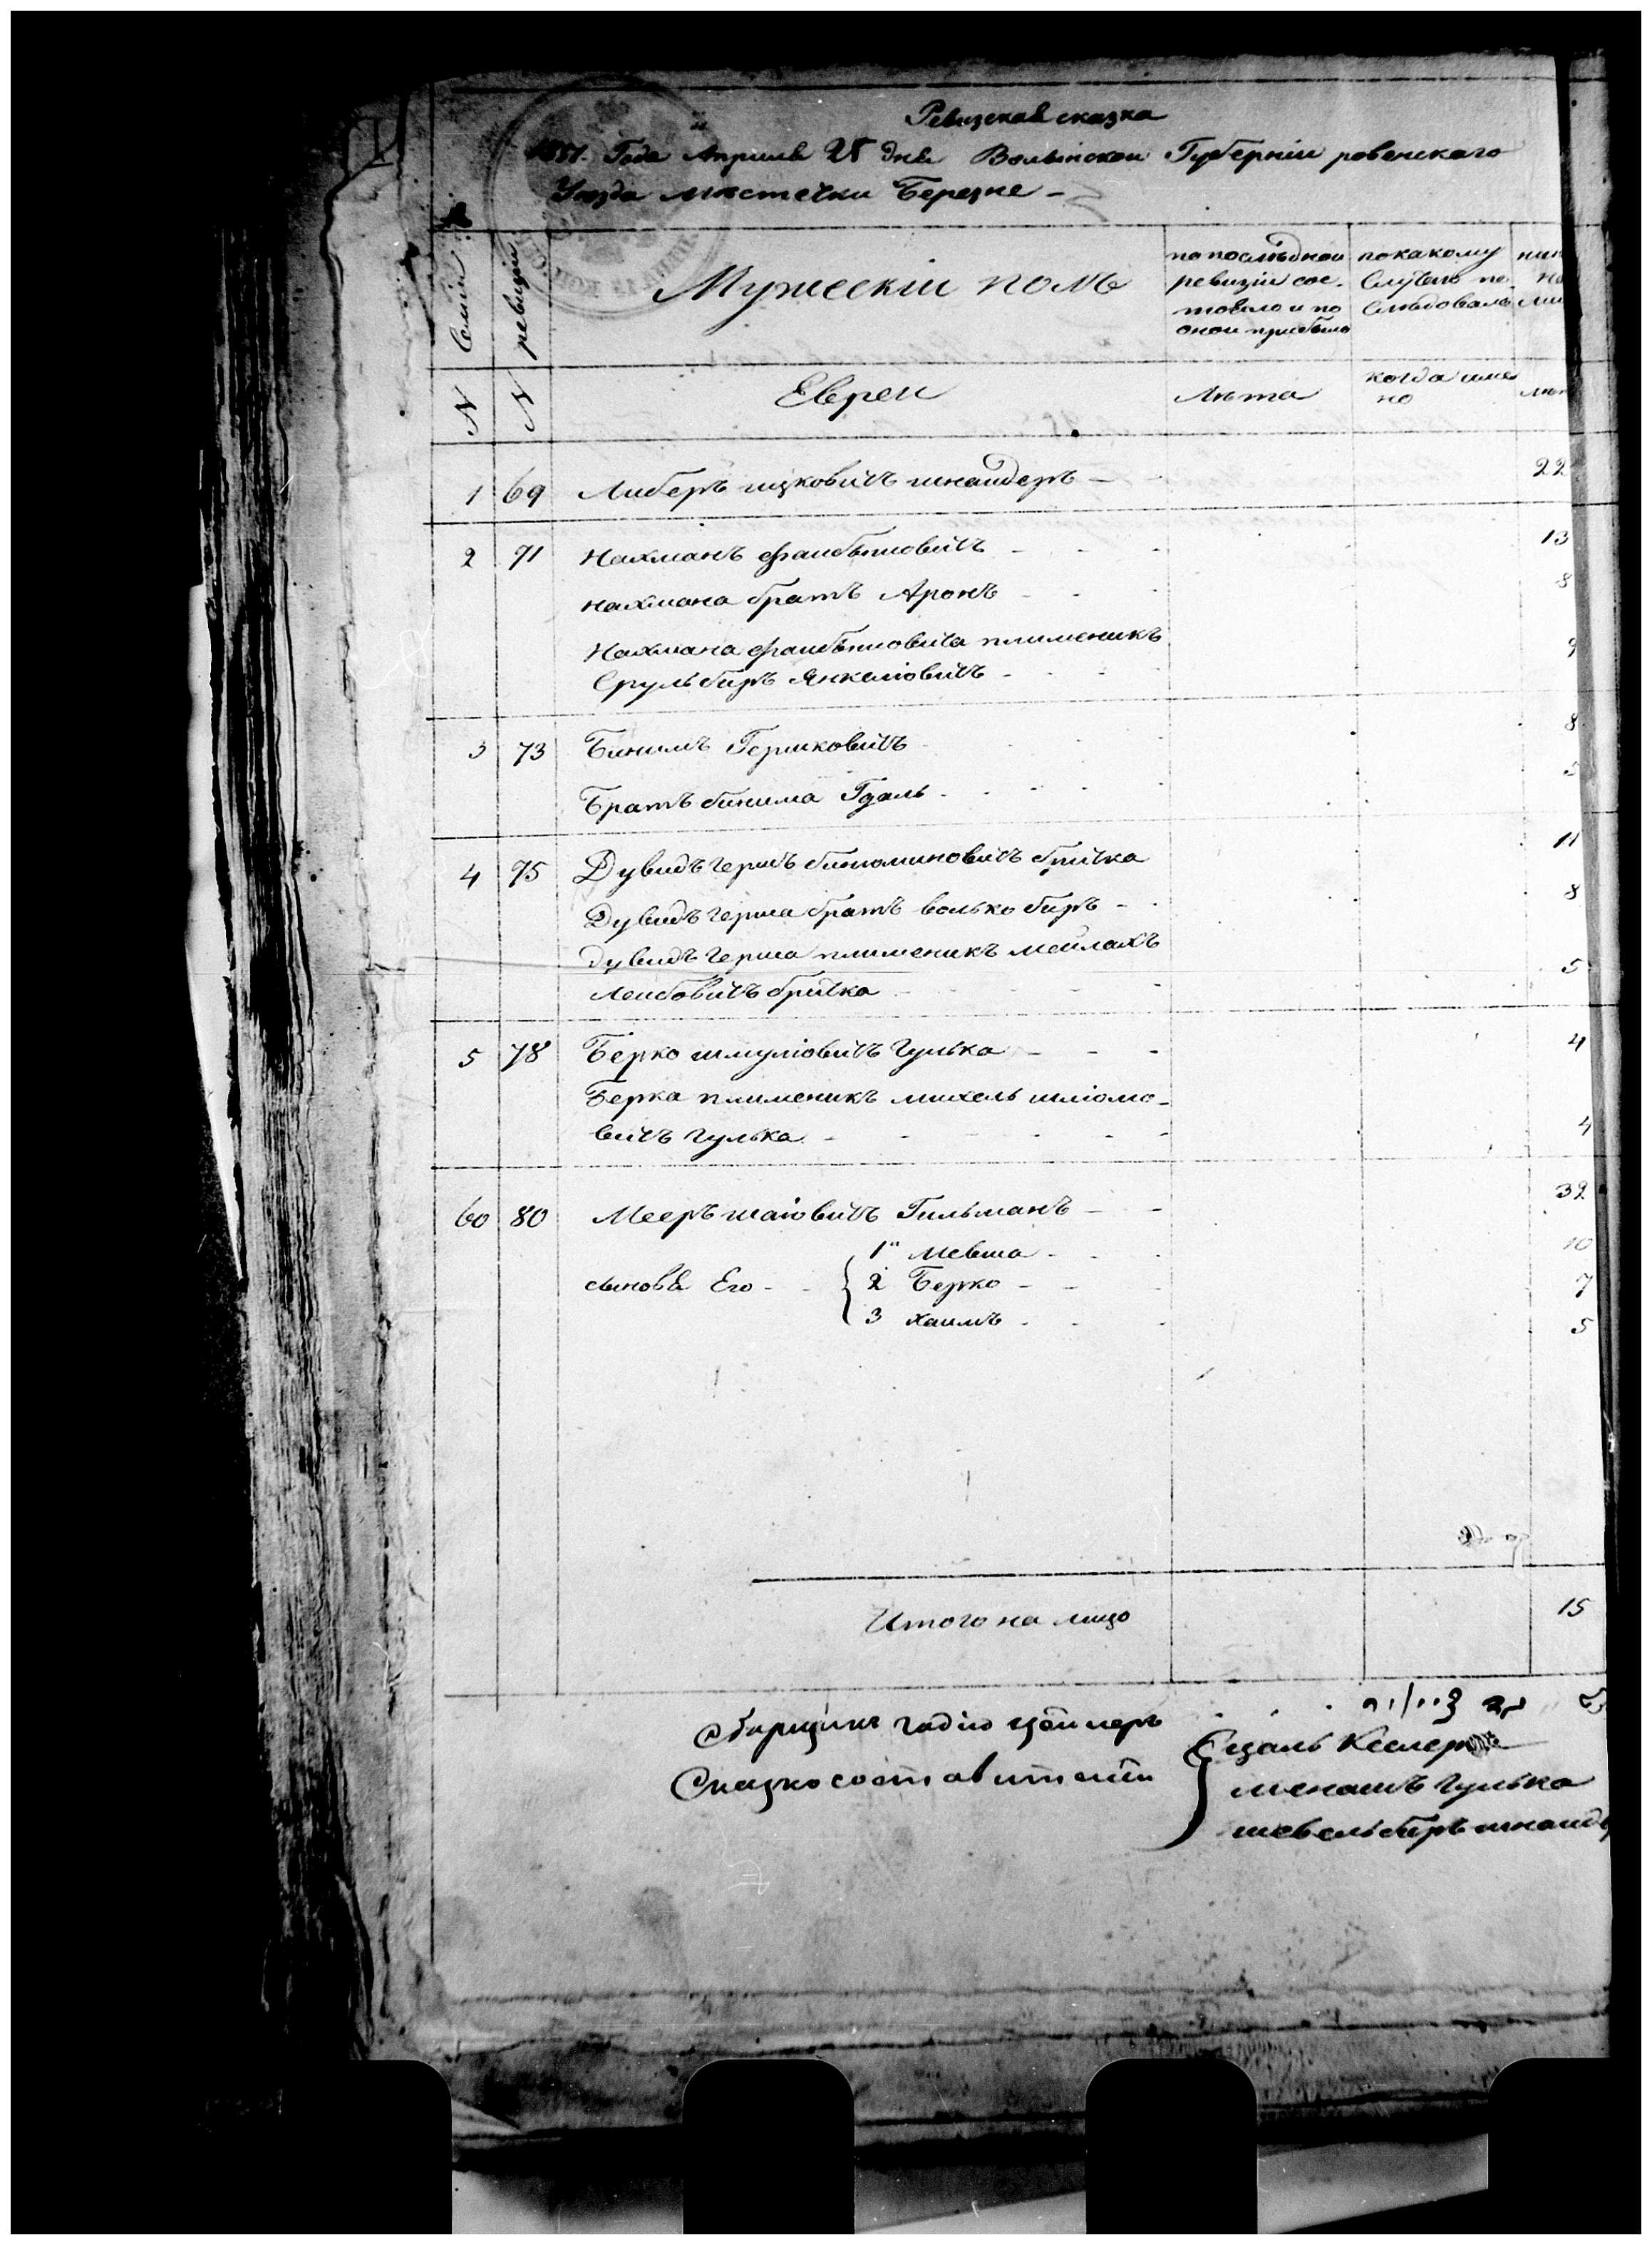 Ревизская сказка
1851. Года Апреля 25 дня Волынской Губернiи ровенского
Уезда местечка Березне -
N Семiи
N ревизiи
Мужескiй полъ
по последной
ревизiи сос-
тояло и по
оной прибыло
по какому
Случаю по-
следовало
Евреи
Лета
когда име
но
1 69 Либеръ ицковичъ шнайдеръ - 22
2 71 Нахманъ файбышовичъ - 13
нахмана братъ Аронъ - 8
Нахмана файбышовича племеникъ 9
Сруль беръ Янкелiовичъ -
3 73 Бинимъ Гершковичъ 8
Братъ бинима Гдаль - 5
4 75 Дувидъ гершъ биниоминовичъ бричка 11
Дувидъ герша братъ волько беръ - 8
Дувидъ герша племеникъ мейлахъ
Лейбовичъ бричка 5
5 78 Берко шмулiовичъ гулька - 4
Берка племеникъ михель шлiомо-
вичъ гулька - 4
60 80 Мееръ шаiовичъ Гильманъ - 39
1й Мевша - 10
сыновя Его - 2 Берко - 7
3 хаимъ - 5
Итого на лицо 15
Сборщикъ
Сказкосоставители
менашъ гулька
шевель беръ шнайд